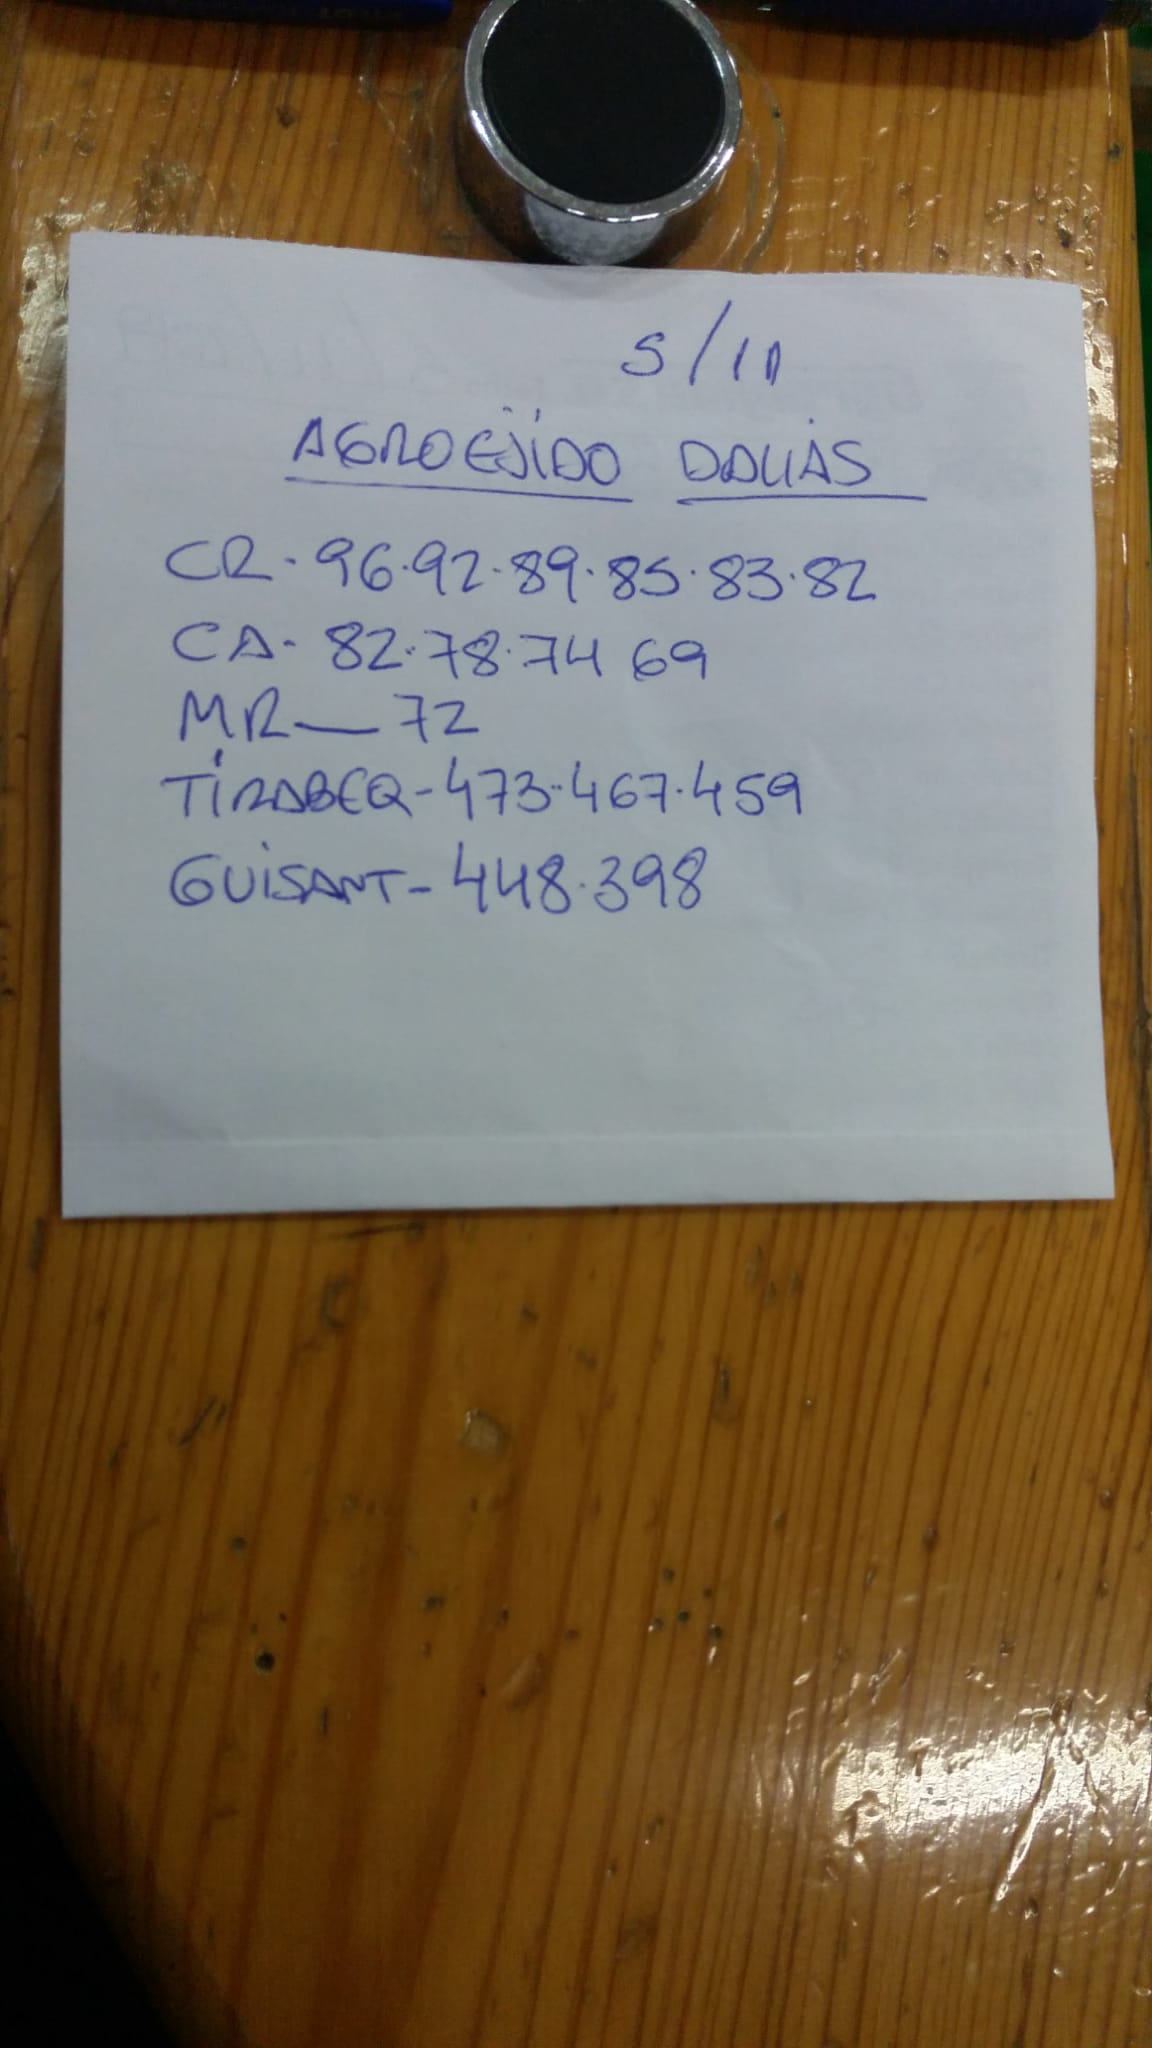 5/11
AGROEJIDO DALIAS
CR. 96.92.89.85.83.82
CA- 82.78.74 69
MR—72
TIRABEQ-473.467.459
GUISANT-448.398